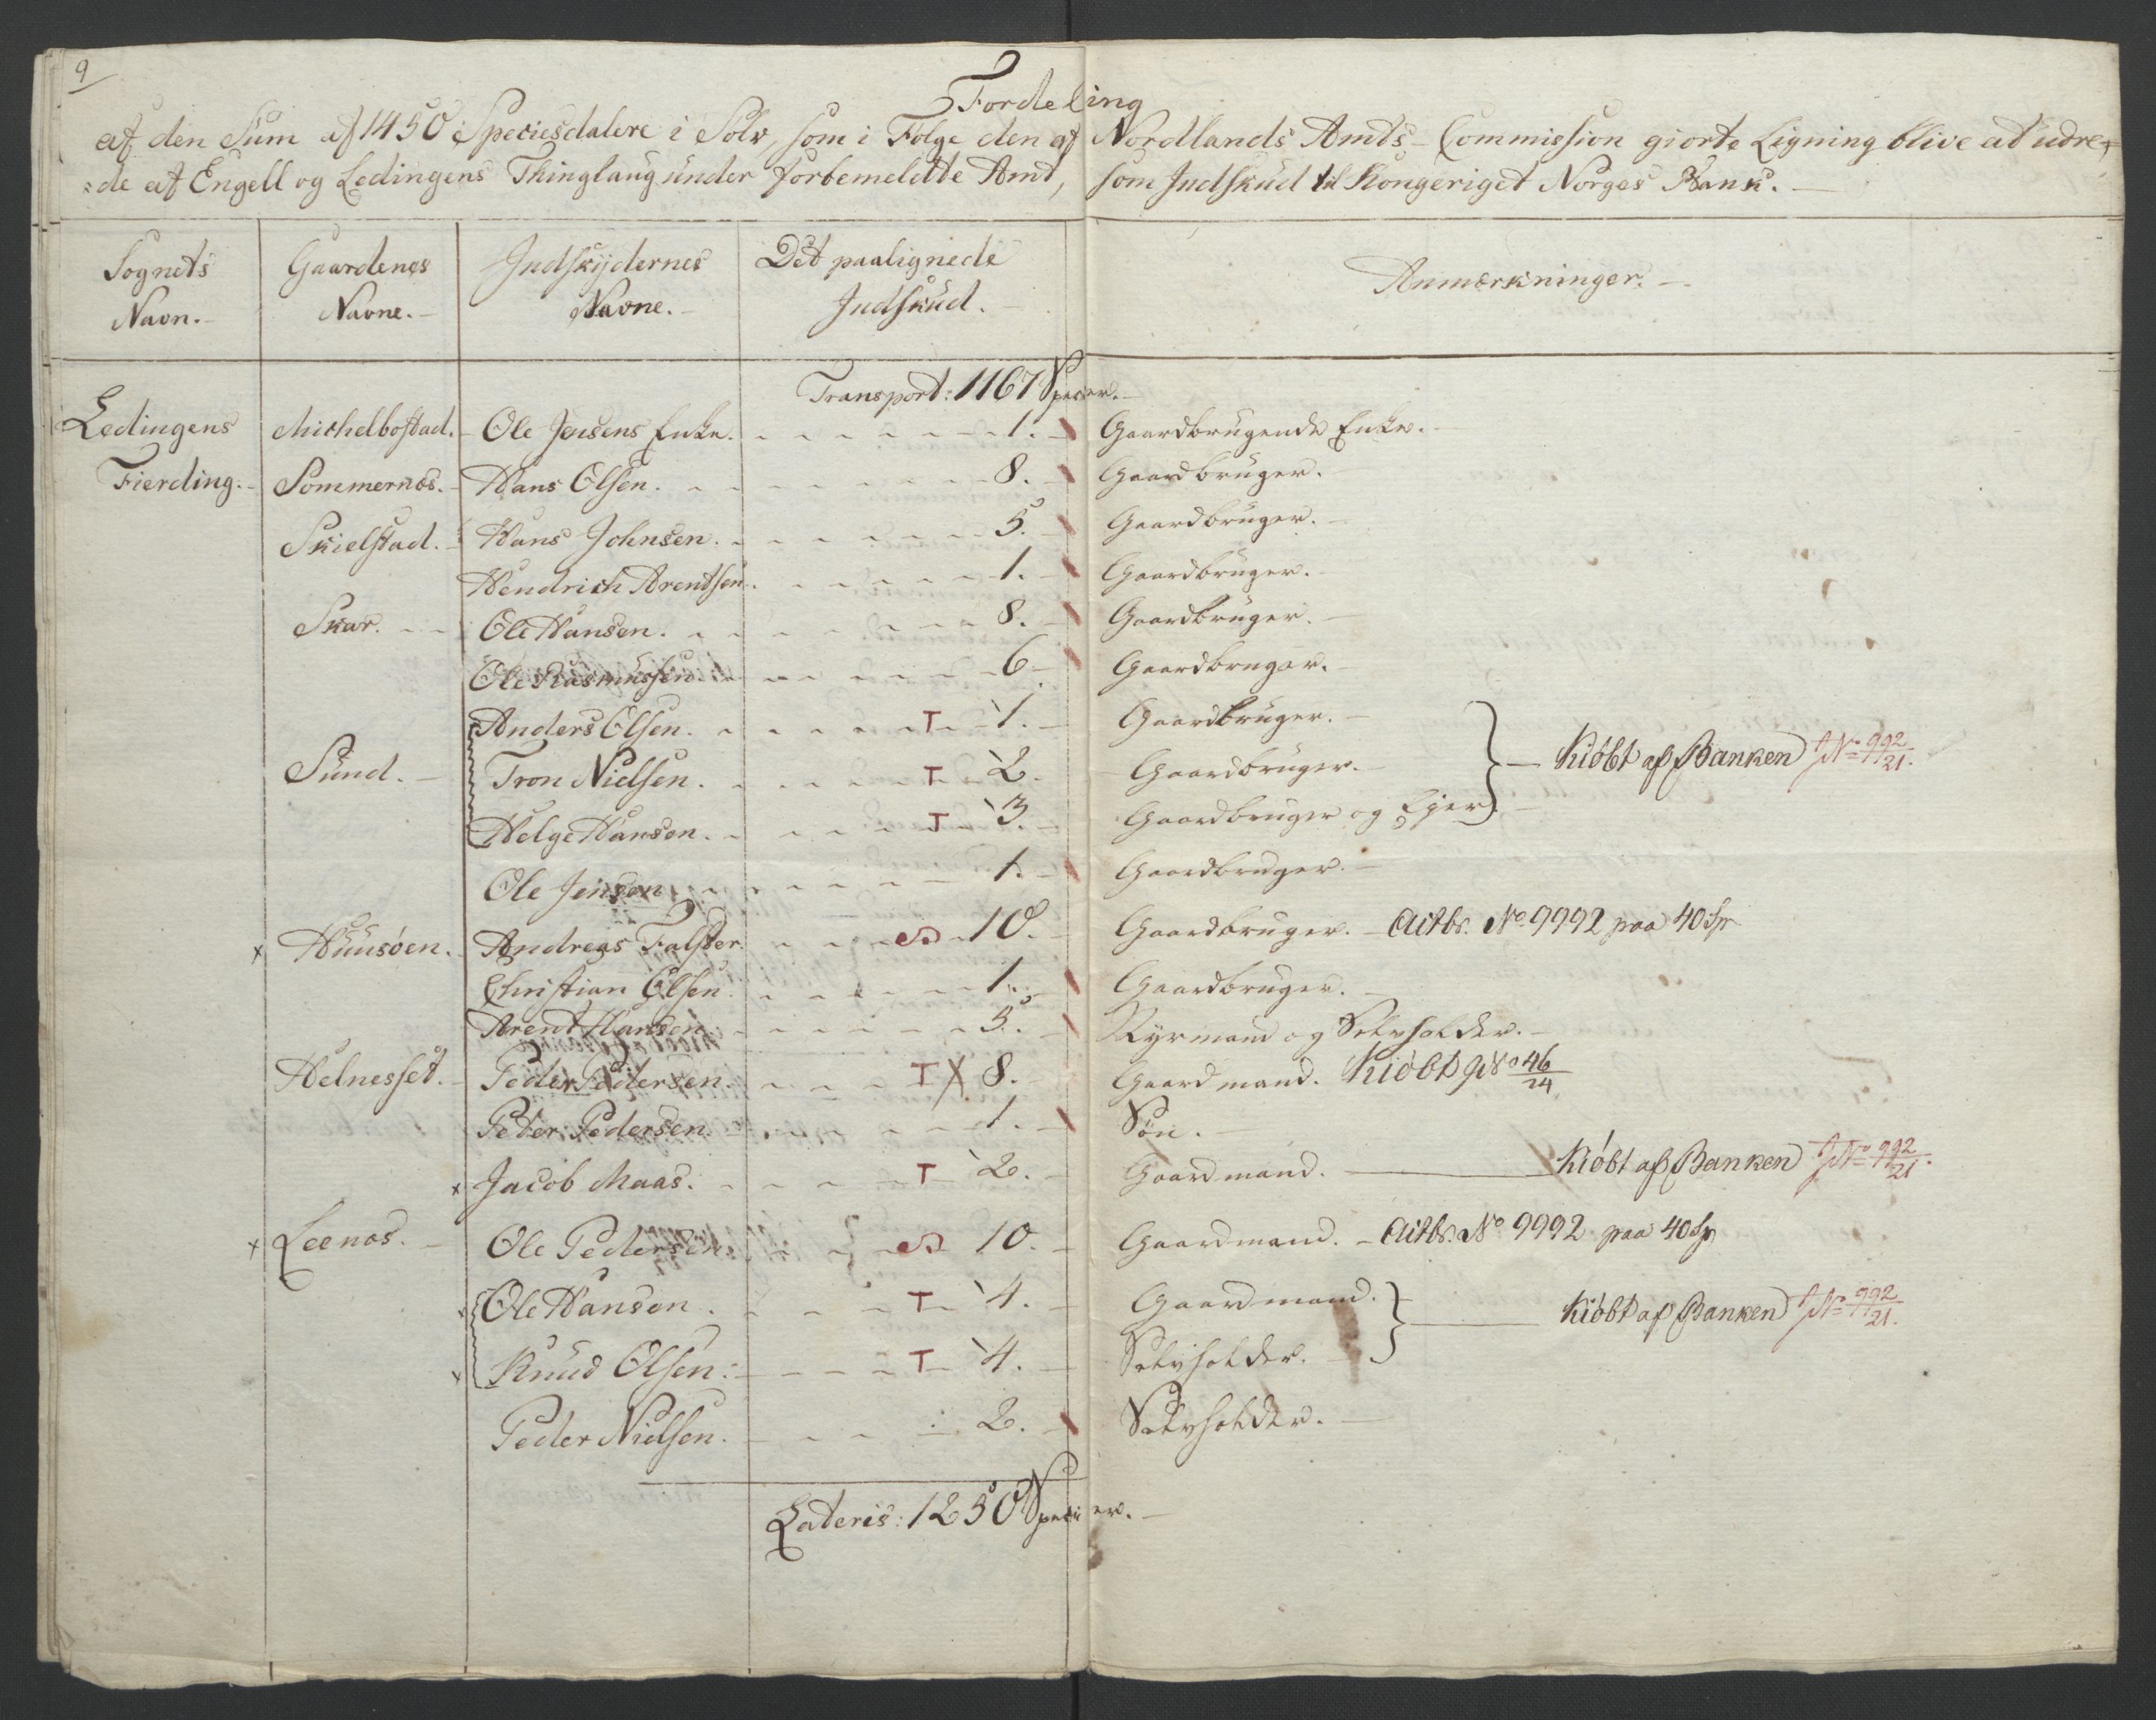 9
Fordeling
af den Sum af 1450 Speciesdalere i Sølv, som i Følge den af Nordlands Amts-Commission giorte Ligning blive at udre=
=de af Engell og Ledingens Thinglaug under forbemeldte Amt, som Indskud til Kongeriget Norges Bank. —
Sognets Navn. — Gaardenes Navne. — Indskydernes Navne. — Det paalignede Indskud. — Anmærkninger. —
Transport: 1167 Specier. —
Ledingens Michelbostad. — Ole Jensens Enke. 1. Gaardbrugende Enke. —
Fierding. — Sommernæs. — Hans Olsen. 8. Gaardbruger. —
Skielstad. — Hans Johnsen. 5. Gaardbruger. —
Hendrich Arentsen. 1. Gaardbruger. —
Skar. Ole Hansen. 8. Gaardbruger. —
Ole Rasmussen. 6. Gaardbruger. —
Anders Olsen. T 1. Gaardbruger. —
Sund. — Tron Nielsen. T 2. Gaardbruger. — } — Kiøbt af Banken J No 992/21.
Helge Hansen. T 3. Gaardbruger og Ejer. —
Ole Jensen 1. Gaardbruger. —
x Huusøen. Andreas Falster. 10. Gaardbruger. — Actbr. No 9992 paa 40 Sp
Christian Olsen. 1. Gaardbruger. —
Arent Hansen. 5. Styrmand og Selvholder. —
Helnesset. — Peder Pedersen. T X 8. Gaardmand. Kiøbt J No 46/24
Peter Pedersen. 1. Søn.
x Jacob Maas. T 2. Gaardmand. — Kiøbt af Banken J No 992/21.
x Leenæs. — Ole Pedersen. 10. Gaardmand. — Actbr. No 9992 paa 40 Sp
x Ole Hansen. T 4. Gaardmand. } — Kiøbt af Banken J No 992/21.
x Knud Olsen. T 4. Selvholder. —
Peder Nielsen. 2. Selvholder. —
Lateris: 1250 Specier. —